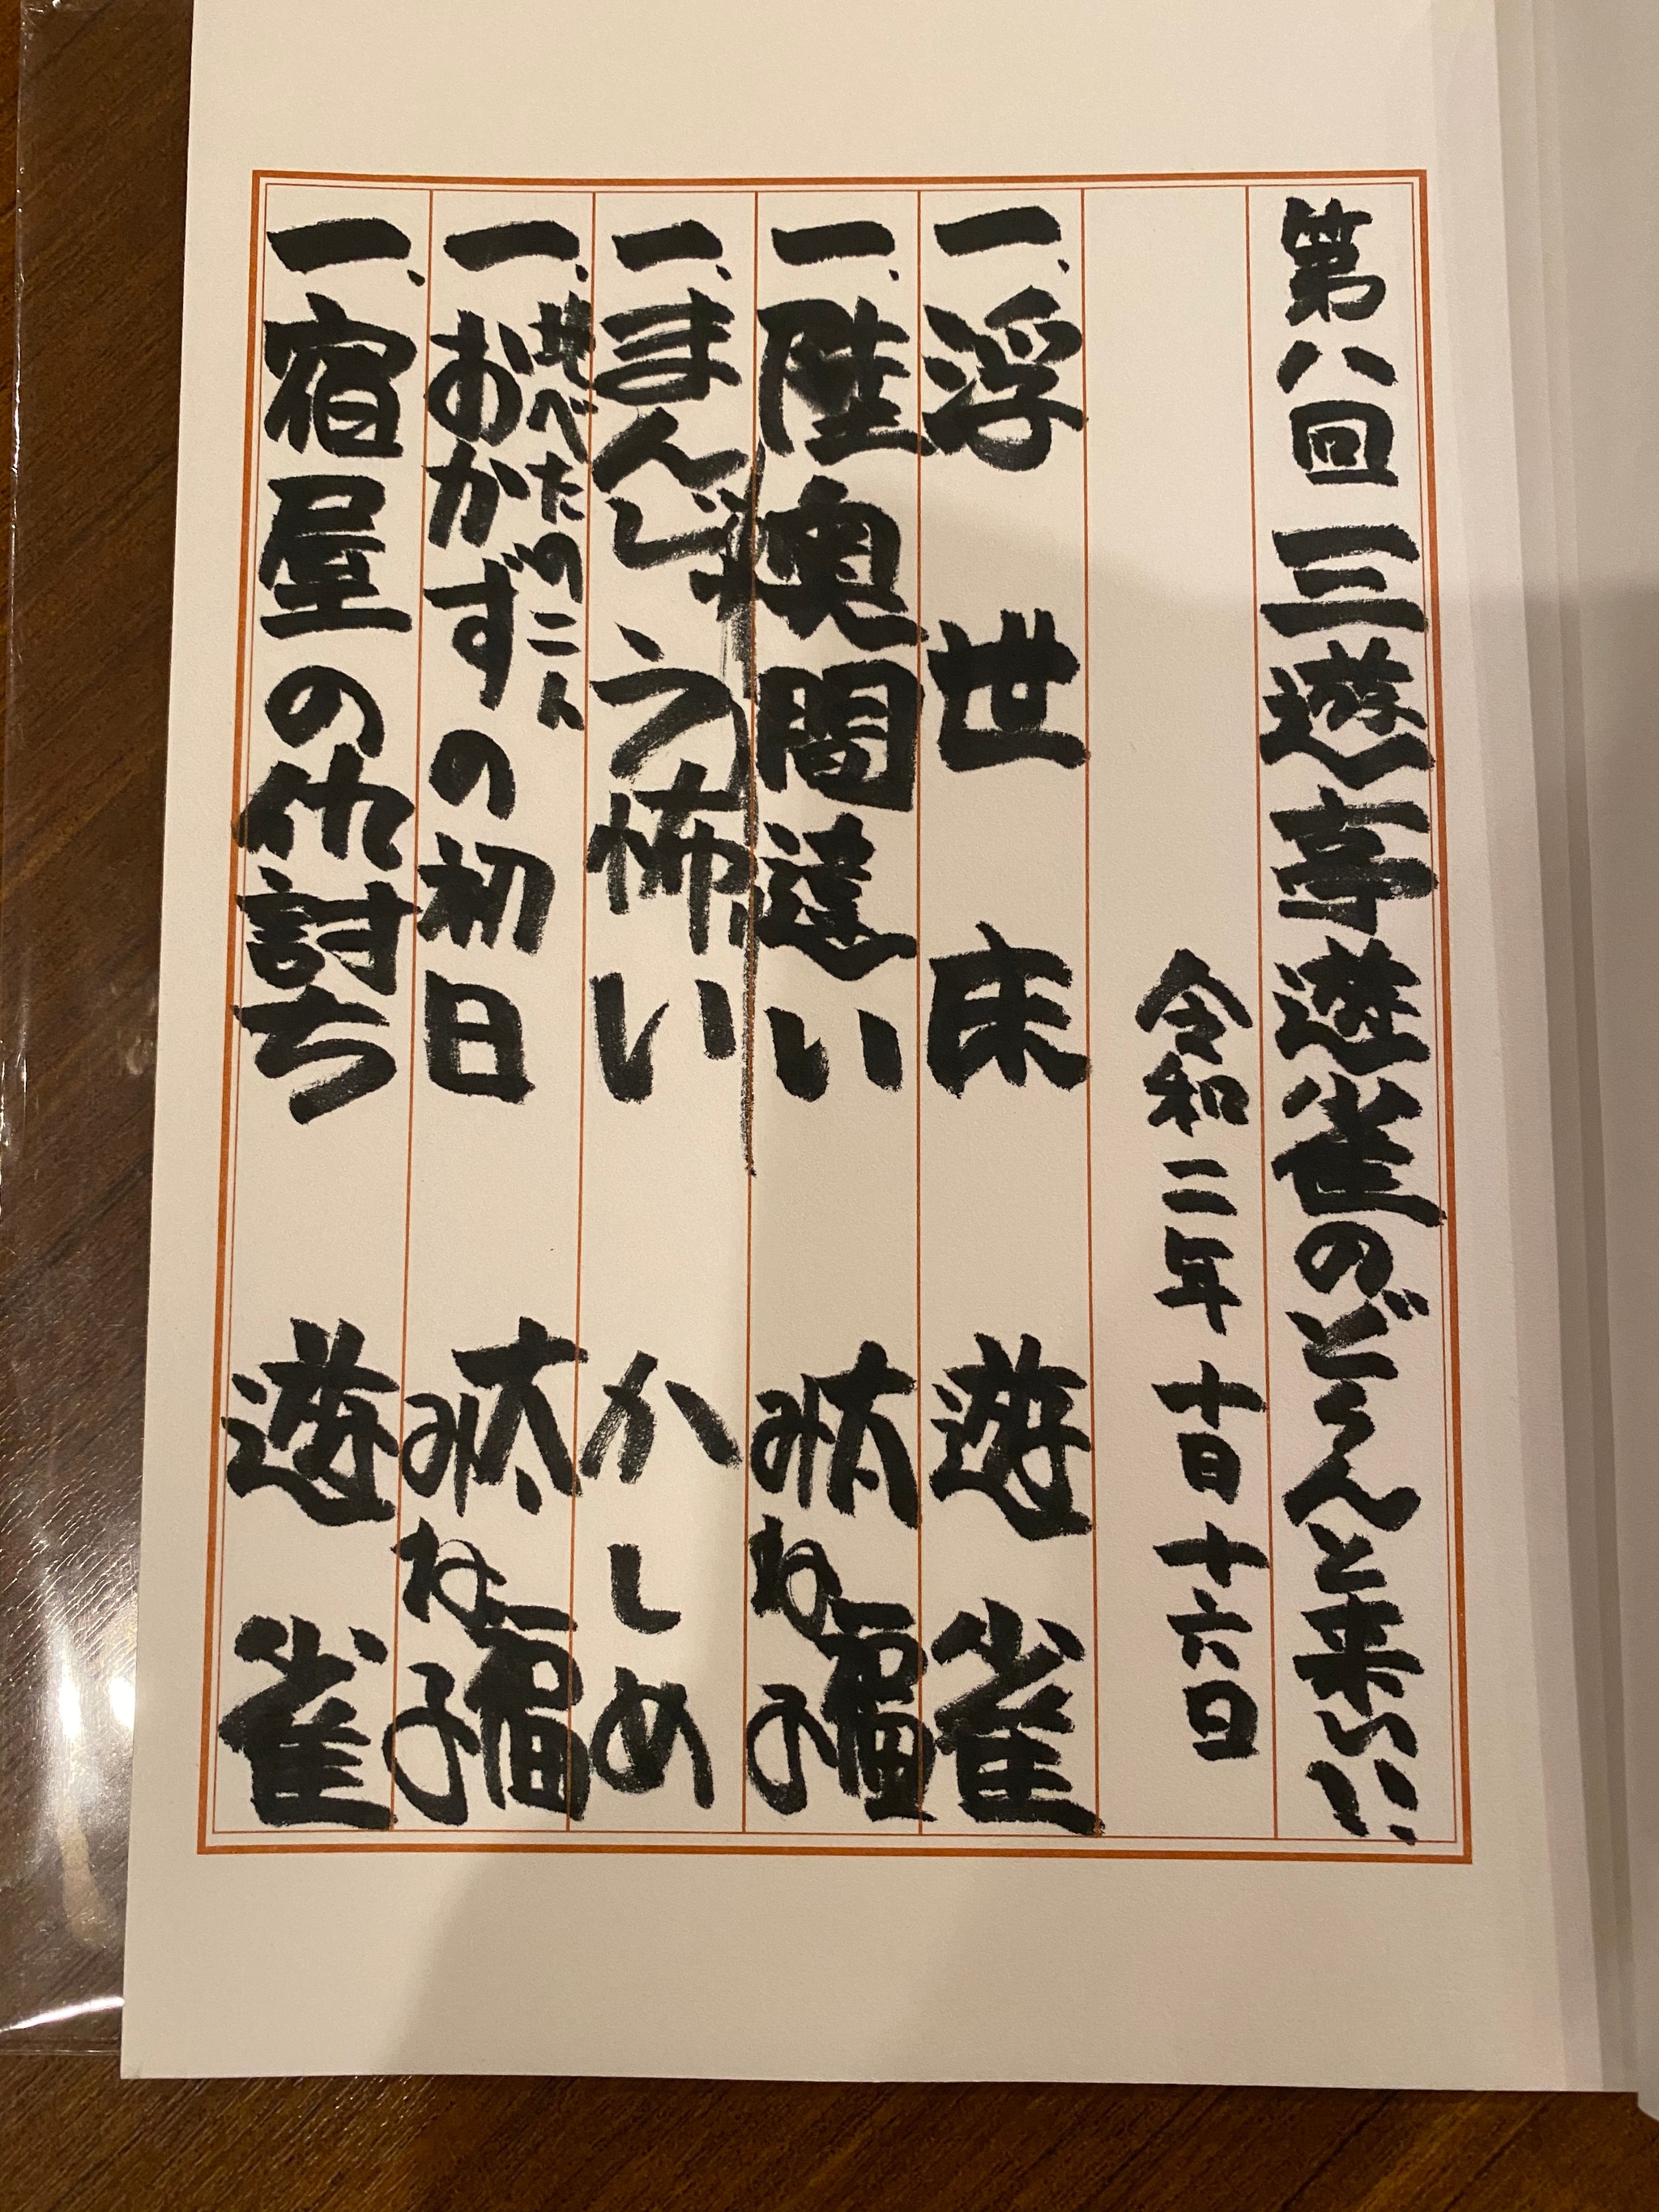 第八回 三遊亭遊雀のどーんと来い!!
令和二年 十月 十六日
一、浮世床 遊雀
一、陸奥間違い 太福 みね子
一、まんじゅう怖い かしめ
一、地べたのこん おかずの初日 太福 みね子
一、宿屋の仇討ち 遊雀